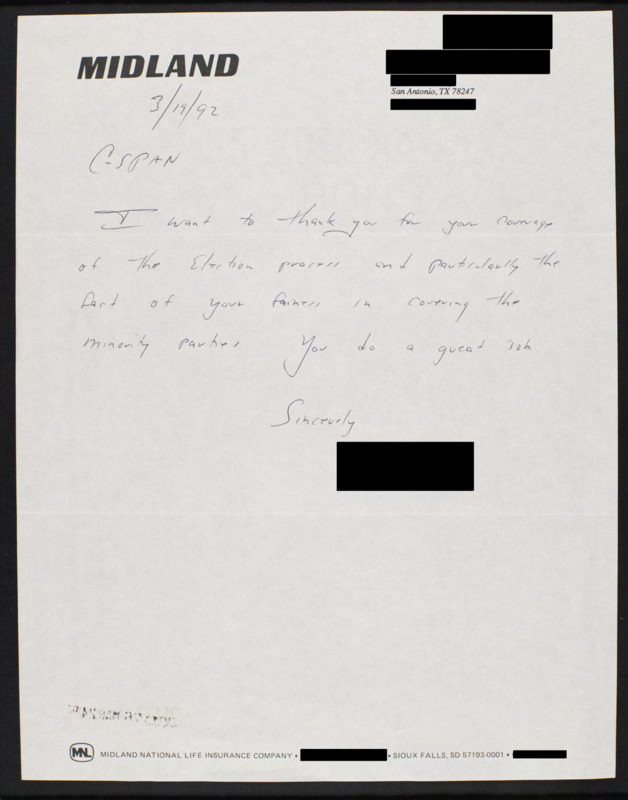 MIDLAND
San Antonio, TX 78247
3/19/92
C-SPAN
I want to thank you for your coverage
of the Election process and particularly the
fact of your fairness in covering the
minority parties You do a great job
Sincerely
MNL MIDLAND NATIONAL LIFE INSURANCE COMPANY • • SIOUX FALLS, SD 57193-0001 •